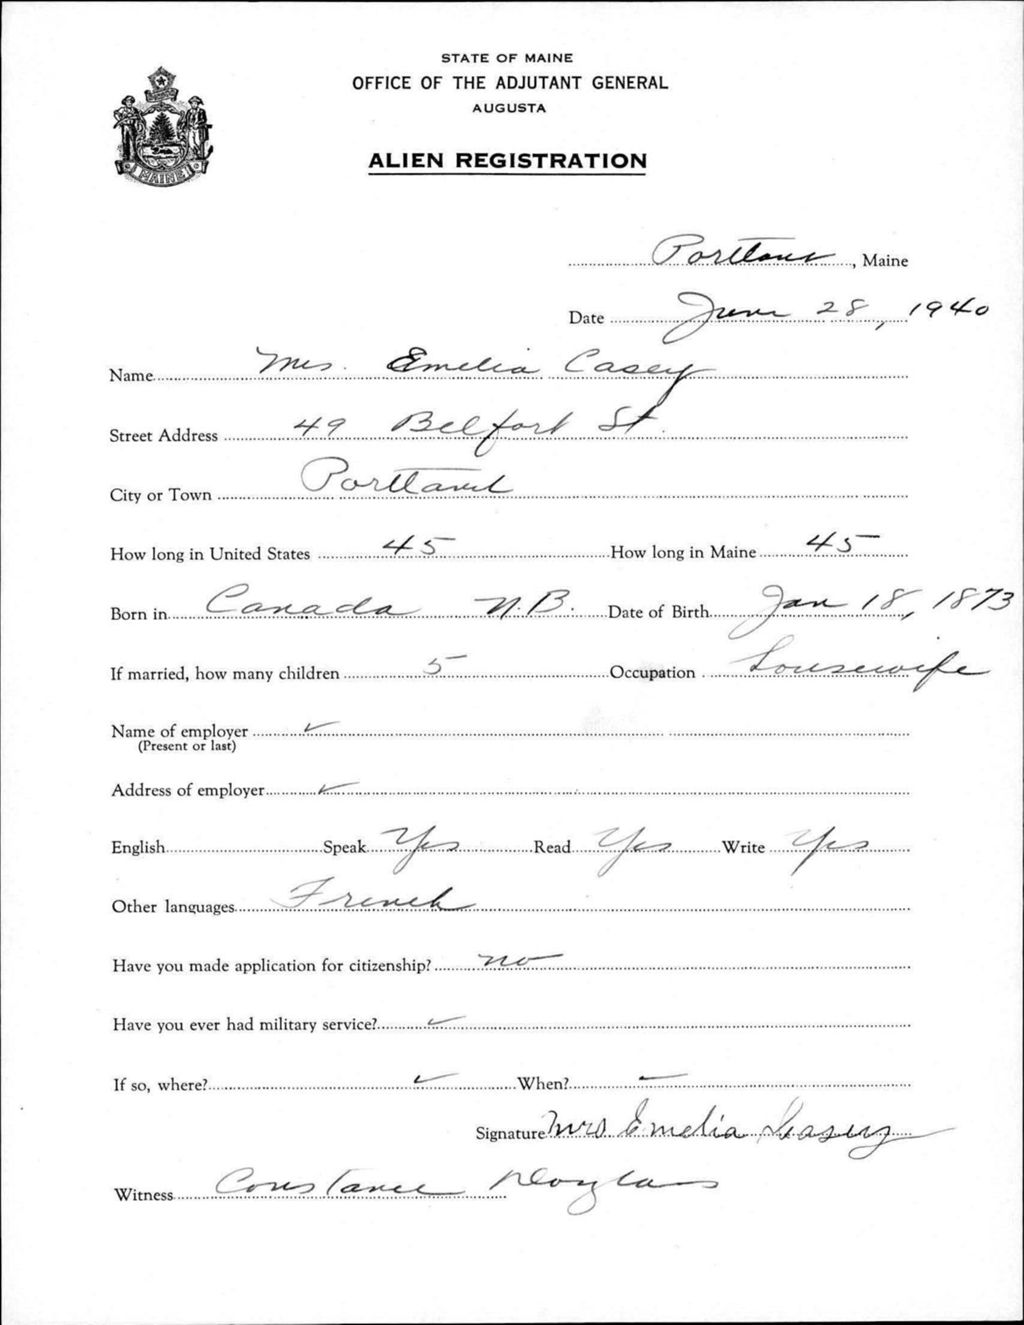 STATE OF MAINE
OFFICE OF THE ADJUTANT GENERAL
AUGUSTA
ALIEN REGISTRATION
MAINE
Portland, Maine
Date June 28, 1940
Name Mrs. Emelia Casey
Street Address 49 Belfort St.
City or Town Portland
How long in United States 45 How long in Maine 45
Born in Canada N.B. Date of Birth Jan 18, 1873
If married, how many children 5 Occupation Housewife
Name of employer ✓
(Present or last)
Address of employer ✓
English Speak Yes Read Yes Write Yes
Other languages French
Have you made application for citizenship? no
Have you ever had military service? ✓
If so, where? ✓ When? ✓
Signature Mrs Emelia Casey
Witness Constance Douglass